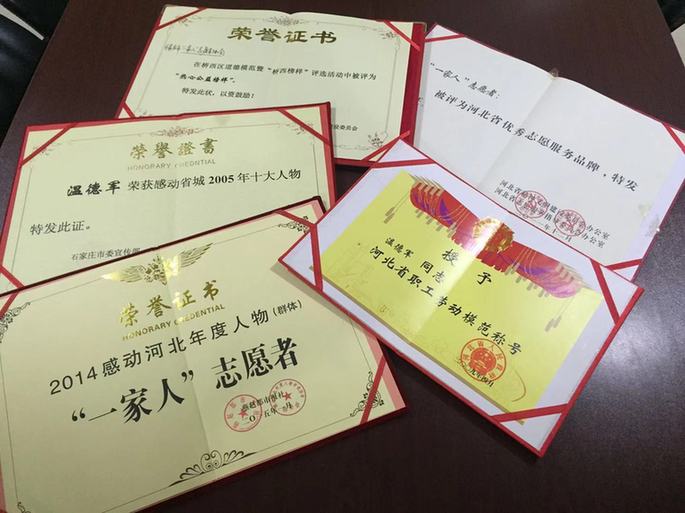 荣誉证书
在桥西区道德模范暨“桥西榜样”评选活动中被评为
“热心公益榜样”。
特发此状，以资鼓励！
“一家人”志愿者：
被评为河北省优秀志愿服务品牌，特发
荣譽證書
HONORARY CREDENTIAL
温德军 荣获感动省城2005年十大人物
特发此证。
石家庄市委宣传部
授予
温德军 同志
河北省职工劳动模范称号
荣誉证书
HONORARY CREDENTIAL
2014感动河北年度人物(群体)
“一家人”志愿者
燕赵都市报社
二〇一五年一月